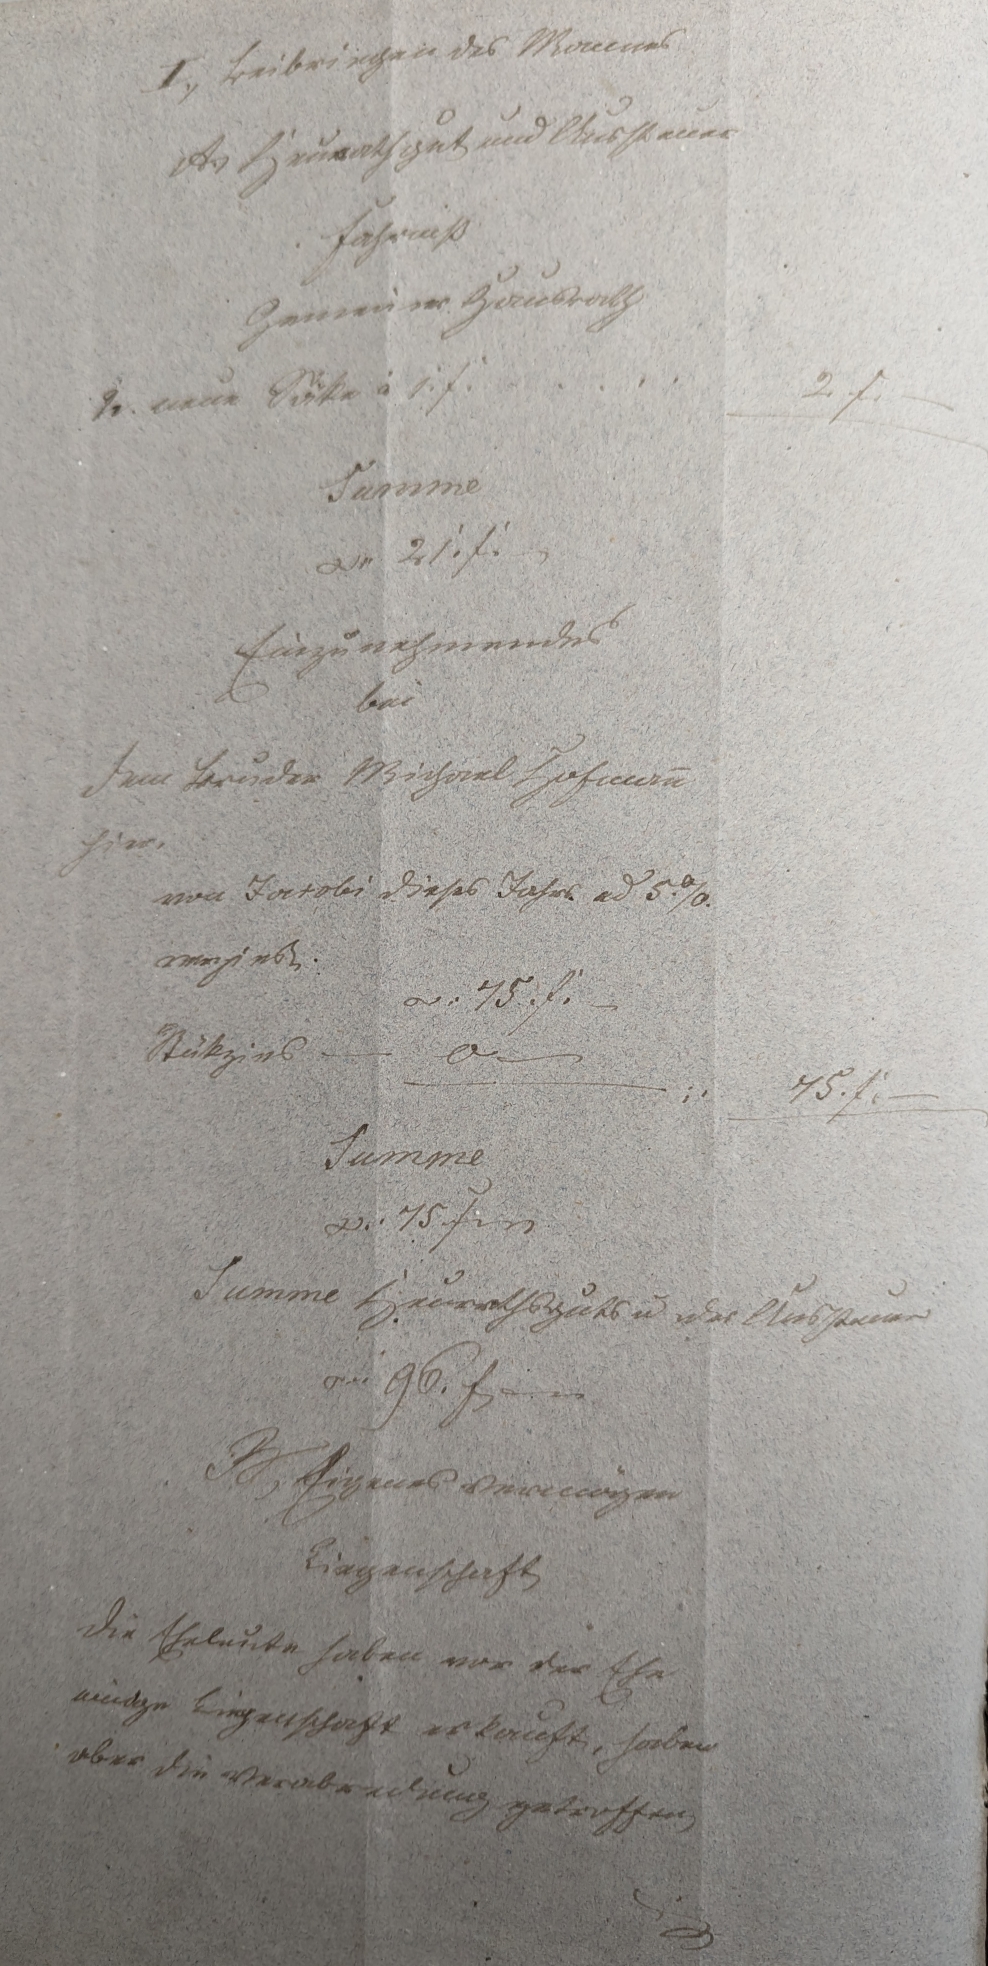 I., Beibringen des Mannes
A., Heurathgut und Aussteuer
Fahrniß
Gemeiner Hausrath
2. neue Säke à 1. f. . . . . . 2 f. —
Summe
21. f. —
Einzunehmendes
bei
dem Bruder Michael Hofmann̄
hier.
von Jacobi dieses Jahrs ad 5. %.
verzinsl.
75. f. —
Stükzins — 0 —
75. f. —
Summe
75 f.
Summe Heurathsguts u der Aussteuer
96. f.
B., Eigenes Vermögen
Liegenschaft
Die Eheleute haben vor der Ehe
einige Liegenschaft erkauft, haben
aber die Verabredung getroffen,